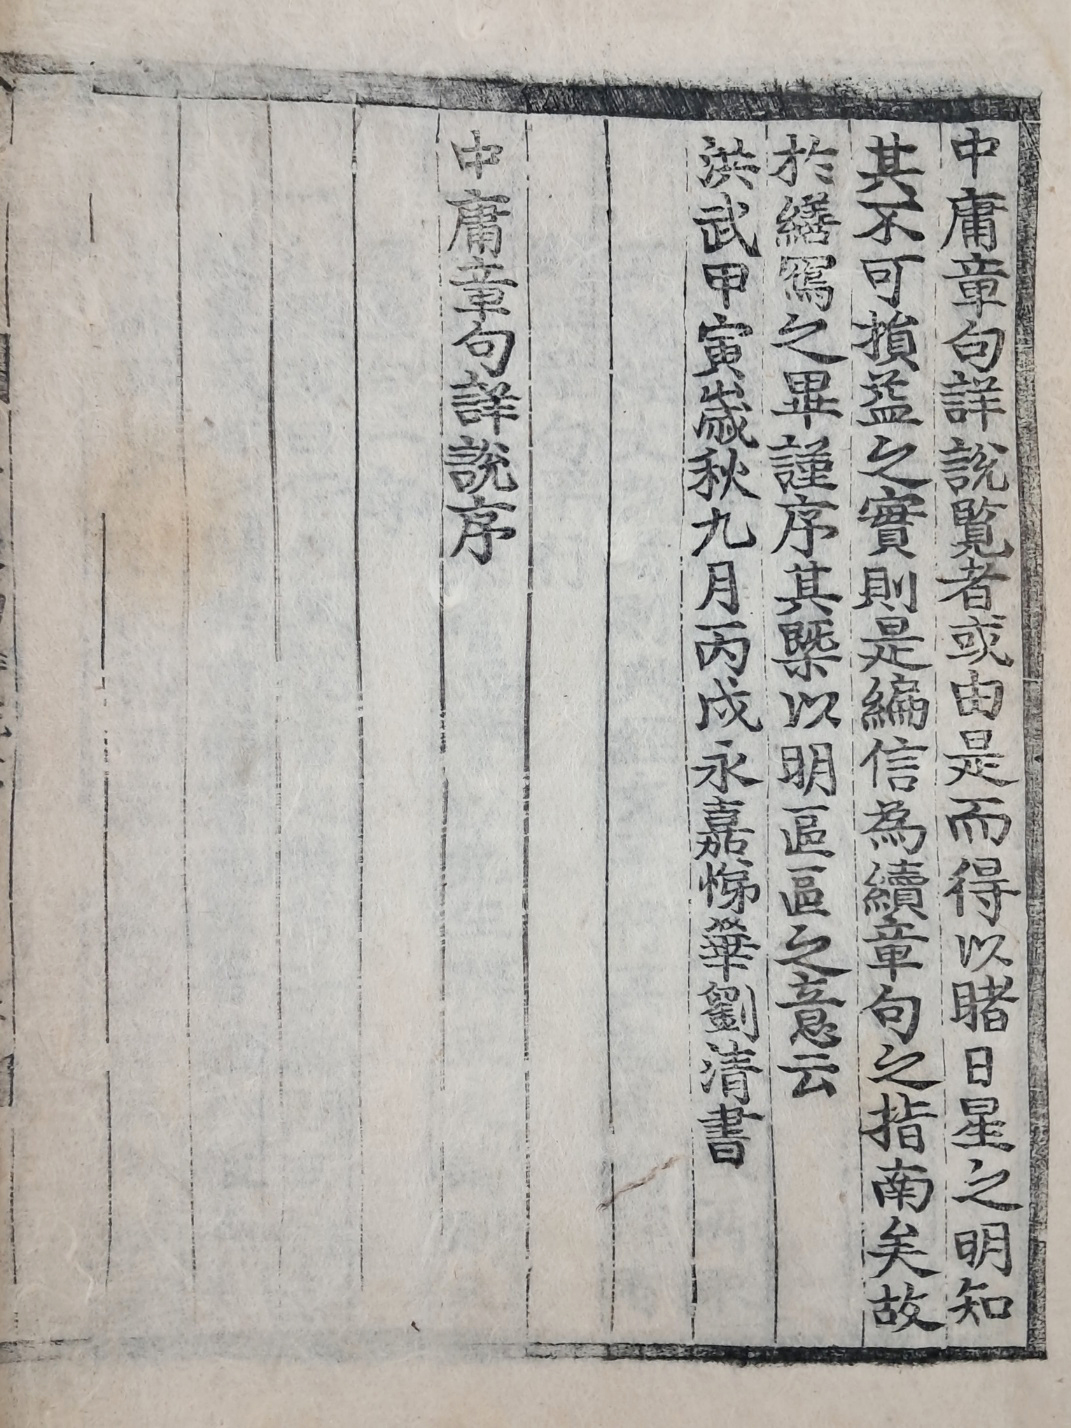 中庸章句詳說覽者或由是而得以睹日星之明知
其不可損益之實則是編信為續章句之指南矣故
於繕寫之畢謹序其槩以明區區之意云
洪武甲寅歲秋九月丙戌永嘉悌華劉清書
中庸章句詳說序